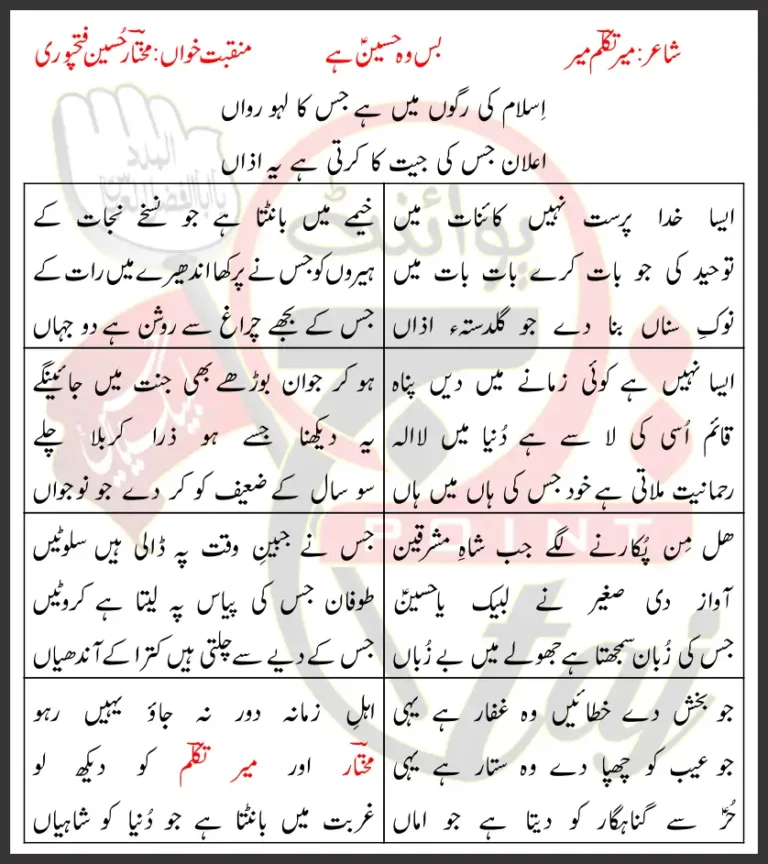 شاعر: میر تکلّم میر
بس وہ حسینؑ ہے
منقبت خواں: مختار حُسین فتحپوری
اِسلام کی رگوں میں ہے جس کا لہو رواں
اعلان جس کی جیت کا کرتی ہے یہ اذاں
ایسا خدا پرست نہیں کائنات میں
توحید کی جو بات کرے بات بات میں
نوکِ سناں بنا دے جو گلدستہء اذاں
خیمے میں بانٹتا ہے جو نسخے نجات کے
ہیروں کو جس نے پرکھا اندھیرے میں رات کے
جس کے بجھے چراغ سے روشن ہے دو جہاں
ایسا نہیں ہے کوئی زمانے میں دیں پناہ
قائم اُسی کی لا سے ہے دُنیا میں لا الہ
رحمانیت ملاتی ہے خود جس کی ہاں میں ہاں
ہو کر جوان بوڑھے بھی جنت میں جائینگے
یہ دیکھنا جسے ہو ذرا کربلا چلے
سو سال کے ضعیف کو کر دے جو نوجواں
ھل مِن پُکارنے لگے جب شاہِ مشرقین
آواز دی صغیر نے لبیک یا حسینؑ
جس کی زُبان سمجھتا ہے جھولے میں بے زُباں
جس نے جبینِ وقت پہ ڈالی ہیں سلوٹیں
طوفان جس کی پیاس پہ لیتا ہے کروٹیں
جس کے دیے سے چلتی ہیں کترا کے آندھیاں
جو بخش دے خطائیں وہ غفار ہے یہی
جو عیب کو چھپا دے وہ ستار ہے یہی
حُرؑ سے گناہگار کو دیتا ہے جو اماں
اہلِ زمانہ دور نہ جاؤ یہیں رہو
مختار اور میر تکلّم کو دیکھ لو
غربت میں بانٹتا ہے جو دُنیا کو شاہیاں
پوائنٹ
POINT
taj